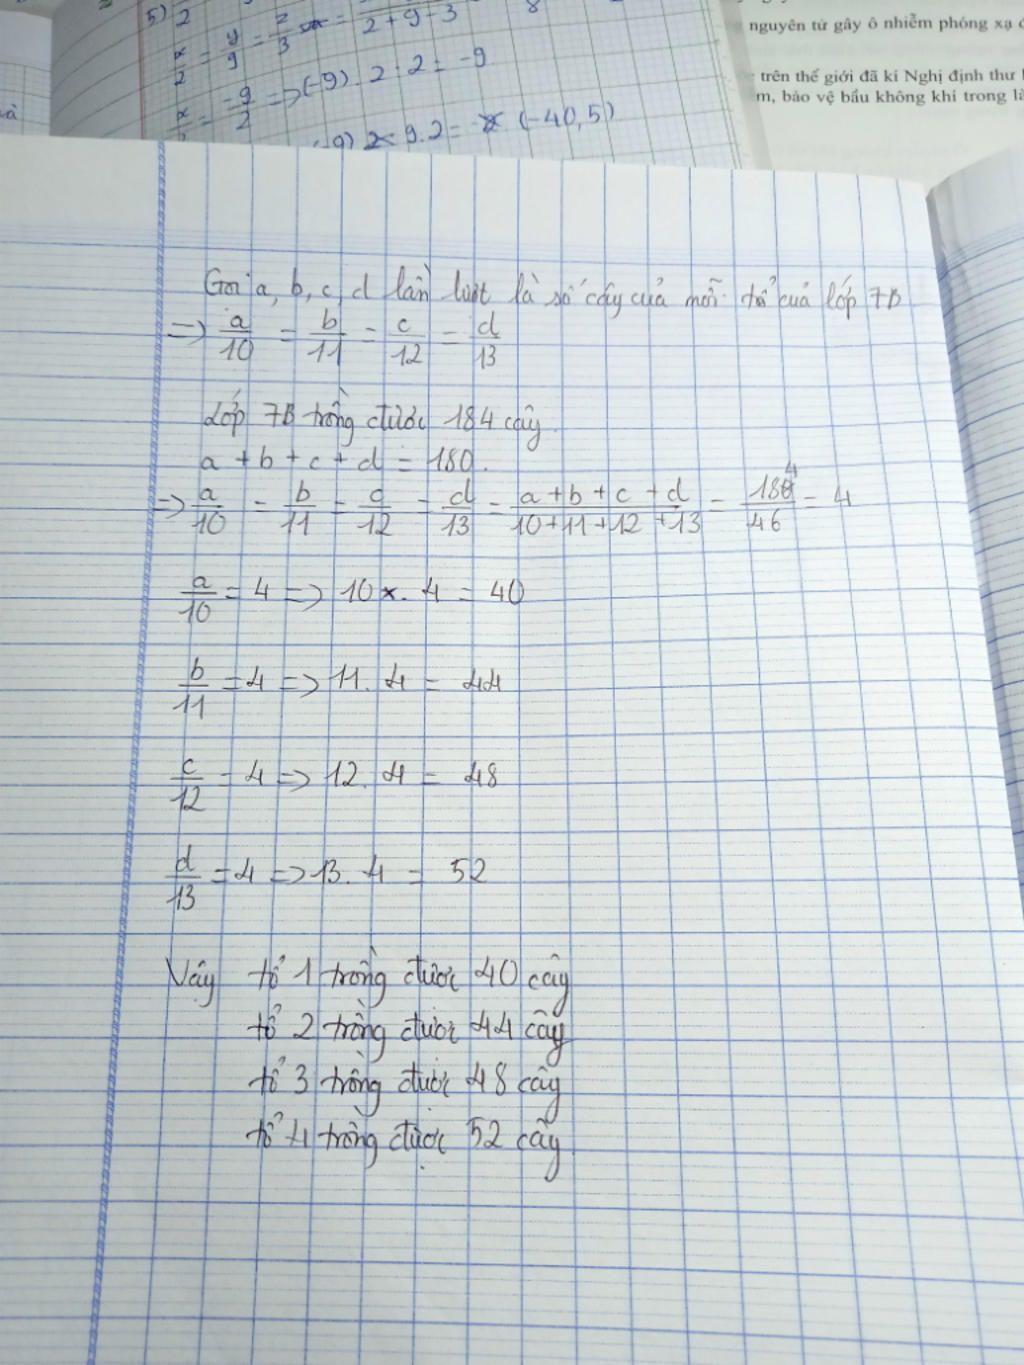 5) 2
x/2 = y/9 = z/3 = 2+9-3 8
x/2 = -9/2 => (-9). 2 : 2 = -9
9.2 = (-40,5)
nguyên tử gây ô nhiễm phóng xạ
trên thế giới đã kí Nghị định thư
m, bảo vệ bầu không khí trong
Gọi a, b, c, d lần lượt là số cây của mỗi tổ của lớp 7B
=> a/10 = b/11 = c/12 = d/13
Lớp 7B trồng được 184 cây.
a + b + c + d = 180.
=> a/10 = b/11 = c/12 = d/13 = a + b + c + d/10+11+12+13 = 184/46 = 4
a/10 = 4 => 10 . 4 = 40
b/11 = 4 => 11. 4 = 44
c/12 = 4 => 12. 4 = 48
d/13 = 4 => 13. 4 = 52
Vậy tổ 1 trồng được 40 cây
tổ 2 trồng được 44 cây
tổ 3 trồng được 48 cây
tổ 4 trồng được 52 cây